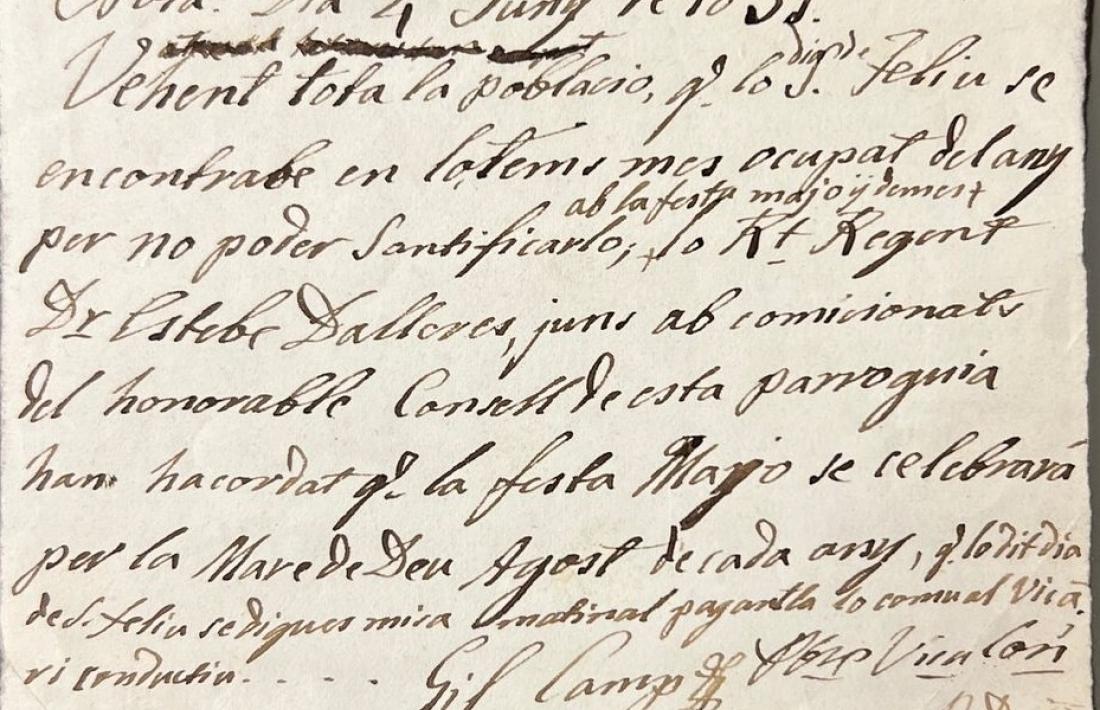 Nota. Dia 4 Juny de 1851.
Vehent tota la poblacio, q.e lo dia de S. Feliu se
encontrabe en lo tems mes ocupat del any
ab la festa majo y demes +
per no poder Santificarlo, + lo Rt Regent
Dr Estebe Dalleres, juns ab comicionats
del honorable Consell de esta parroquia
han hacordat q.e la festa Majo se celebrará
per la Mare de Deu Agost de cada any, q.e lo dit dia
de S. Feliu se digues misa matinal pagantla lo comu al Vica
ri conductiu. . . . Gil Camp Pbre Vica Con